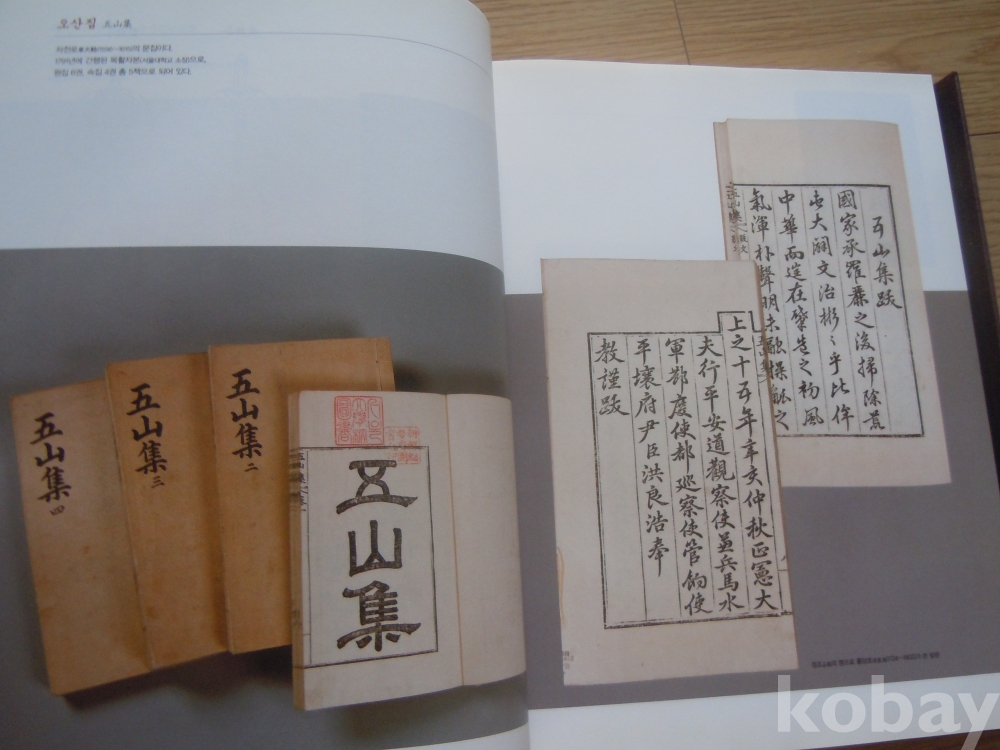 오산집 五山集
차천로(1556~1615)의 문집이다.
1791년에 간행된 목활자본(서울대학교 소장)으로,
원집 6권, 속집 4권 총 5책으로 되어 있다.
五山集 四
五山集 三
五山集 二
五山集
五山集跋
國家承羅麗之後掃除荒
屯大闢文治彬〻乎比侔
中華而逬在檗造之初風
氣渾朴聲明未融操觚之
上之十五年辛亥仲秋正憲大
夫行平安道觀察使兼兵馬水
軍都度使都巡察使管餉使
平壤府尹臣洪良浩奉
教謹跋
kobay